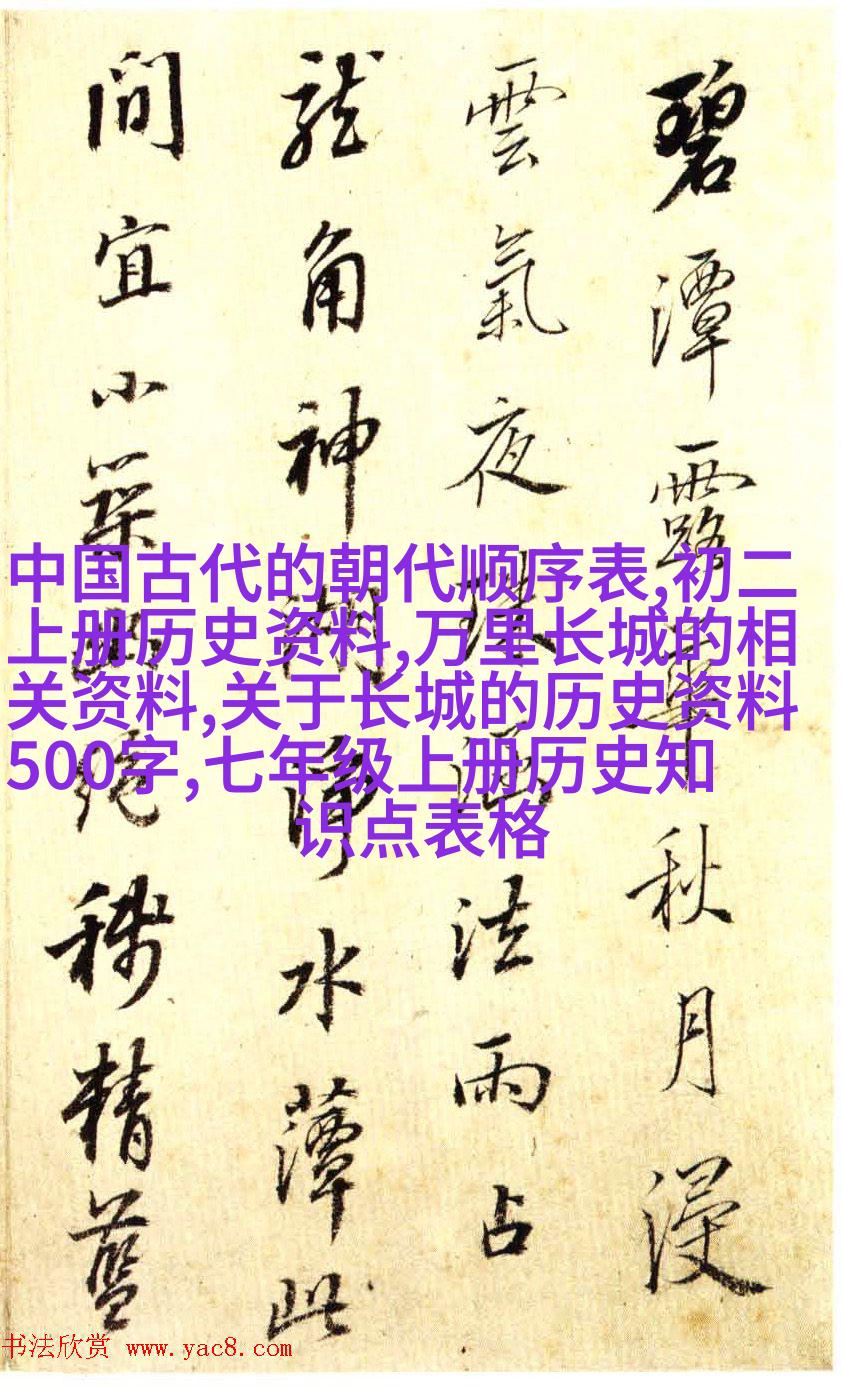 碧潭露華秋月浸
雲氣夜珠涵法雨占
龍角神湖淨水藫此
間宜小築幽絕稱精藍
中国古代的朝代顺序表,初二
上册历史资料,万里长城的相
关资料,关于长城的历史资料
500字,七年级上册历史知
识点表格
书法欣赏 www.yac8.com